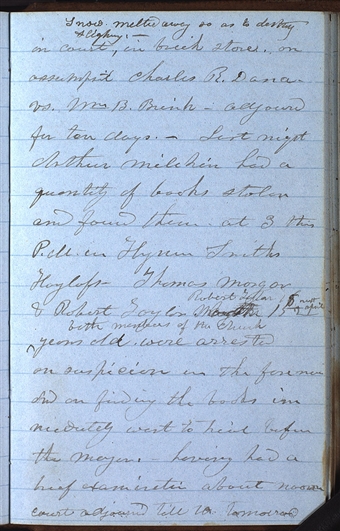 Snow. melted away so as to destroy
sleighing :—
in court, in brick store, on
assumpsit Charles R. Dana
vs. Wm B. Brink — adjourd
for ten days. — Last night
Arthur Milikin had a
quantity of books stolen
and found them at 3 this
P.M. in Hyrum Smiths
Hayloft Thomas Morgan
& Robert Taylor 15
both members of the Church
years old. were arrested
on suspicion in the forenoon
and on finding the books im
mediately went to trial before
the mayor — having had a
brief examination about noon
court adjourned till 10. tomorrow